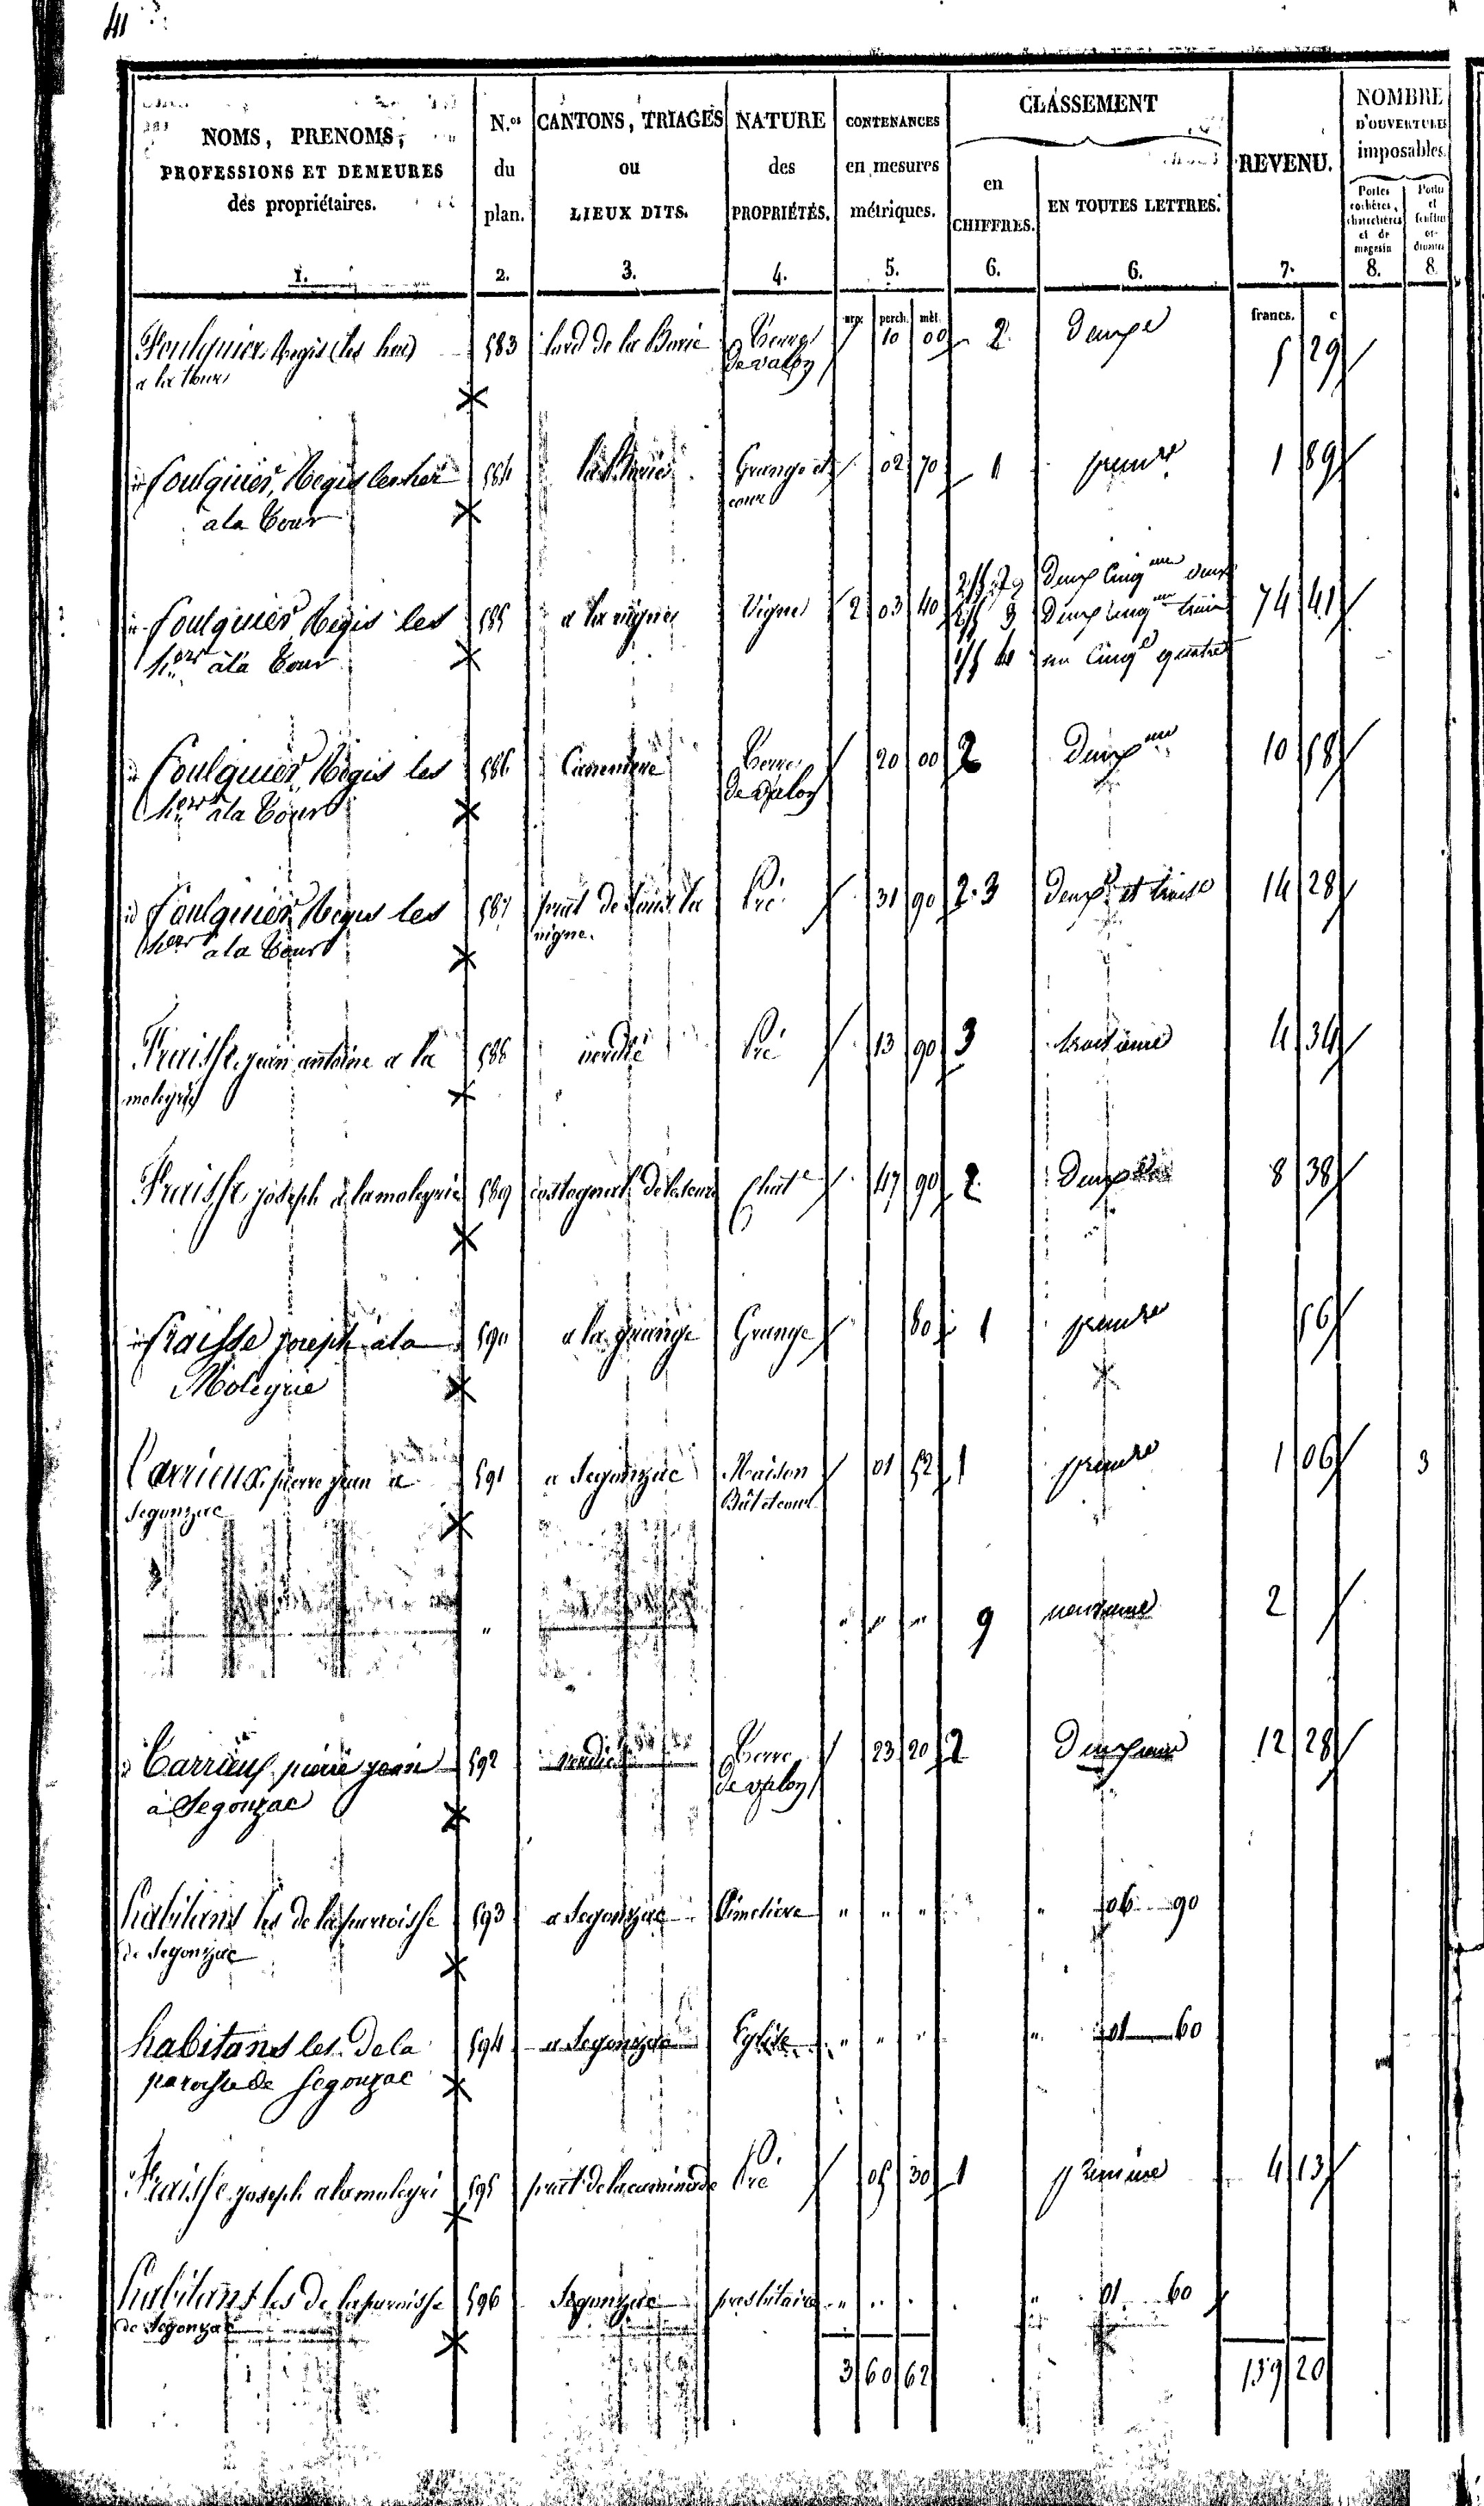 41
NOMS, PRENOMS,
PROFESSIONS ET DEMEURES
des propriétaires.
1.
N.os
du
plan.
2.
CANTONS, TRIAGES
ou
LIEUX DITS.
3.
NATURE
des
PROPRIÉTÉS.
4.
CONTENANCES
en mesures
métriques.
5.
CLASSEMENT
en
CHIFFRES.
6.
EN TOUTES LETTRES.
6.
REVENU.
7.
NOMBRE
D'OUVERTURES
imposables.
Portes cochères, charretières et de magasin
8.
Portes et fenêtres or- dinaires
8
arp. perch. mèt. francs. c
Foulquier Regis (les her) 583 de la Borie Terre 10 00 2 deuxe 5 29
a la Tour de valon
id foulquier, Regis les her 584 la Borie Grange et 02 70 1 premre 1 89
à la Tour cour
id foulquier Regis les 585 a la vigne Vigne 2 03 40 2/5 2 deux cinqme deux 74 41
hers à la Tour 2/5 3 deux cinqme trois
1/5 4 un cinqe quatre
id foulquier, Regis les 586 Terre 20 00 2 deuxme 10 58
hers à la Tour de valon
id foulquier Regis les 587 prat de sous la Pré 31 90 2.3 deuxe et troise 14 28
hers a la Tour vigne.
Fraisse jean antoine a la 588 verdié Pré 13 90 3 troisième 4 34
molegrie
Fraisse joseph à la molegrie 589 Chate 47 90 2 deux 8 38
id fraisse joseph à la 590 a la grange Grange 80 1 premre 56
Molegrie
Carrieux pierre jean a 591 a Segonzac Maison 01 52 1 premre 1 06 3
Segonzac Bât et cour
" " " " 9 neuvieme 2
id Carrieux pierre jean 592 verdié Terre 23 20 2 deuxieme 12 28
à Segonzac de valon
habitans les de la parroisse 593 a Segonzac Cimetière " " " " 06 90
de Segonzac
habitans les de la 594 a Segonzac Eglise " " " " 01 60
paroisse de Segonzac
Fraisse joseph a la molegri 595 prat de la caminade Pré 05 30 1 premiere 4 13
habitans les de la parroisse 596 Segonzac presbitaire " " " " 01 60
de Segonzac
3 60 62 139 20